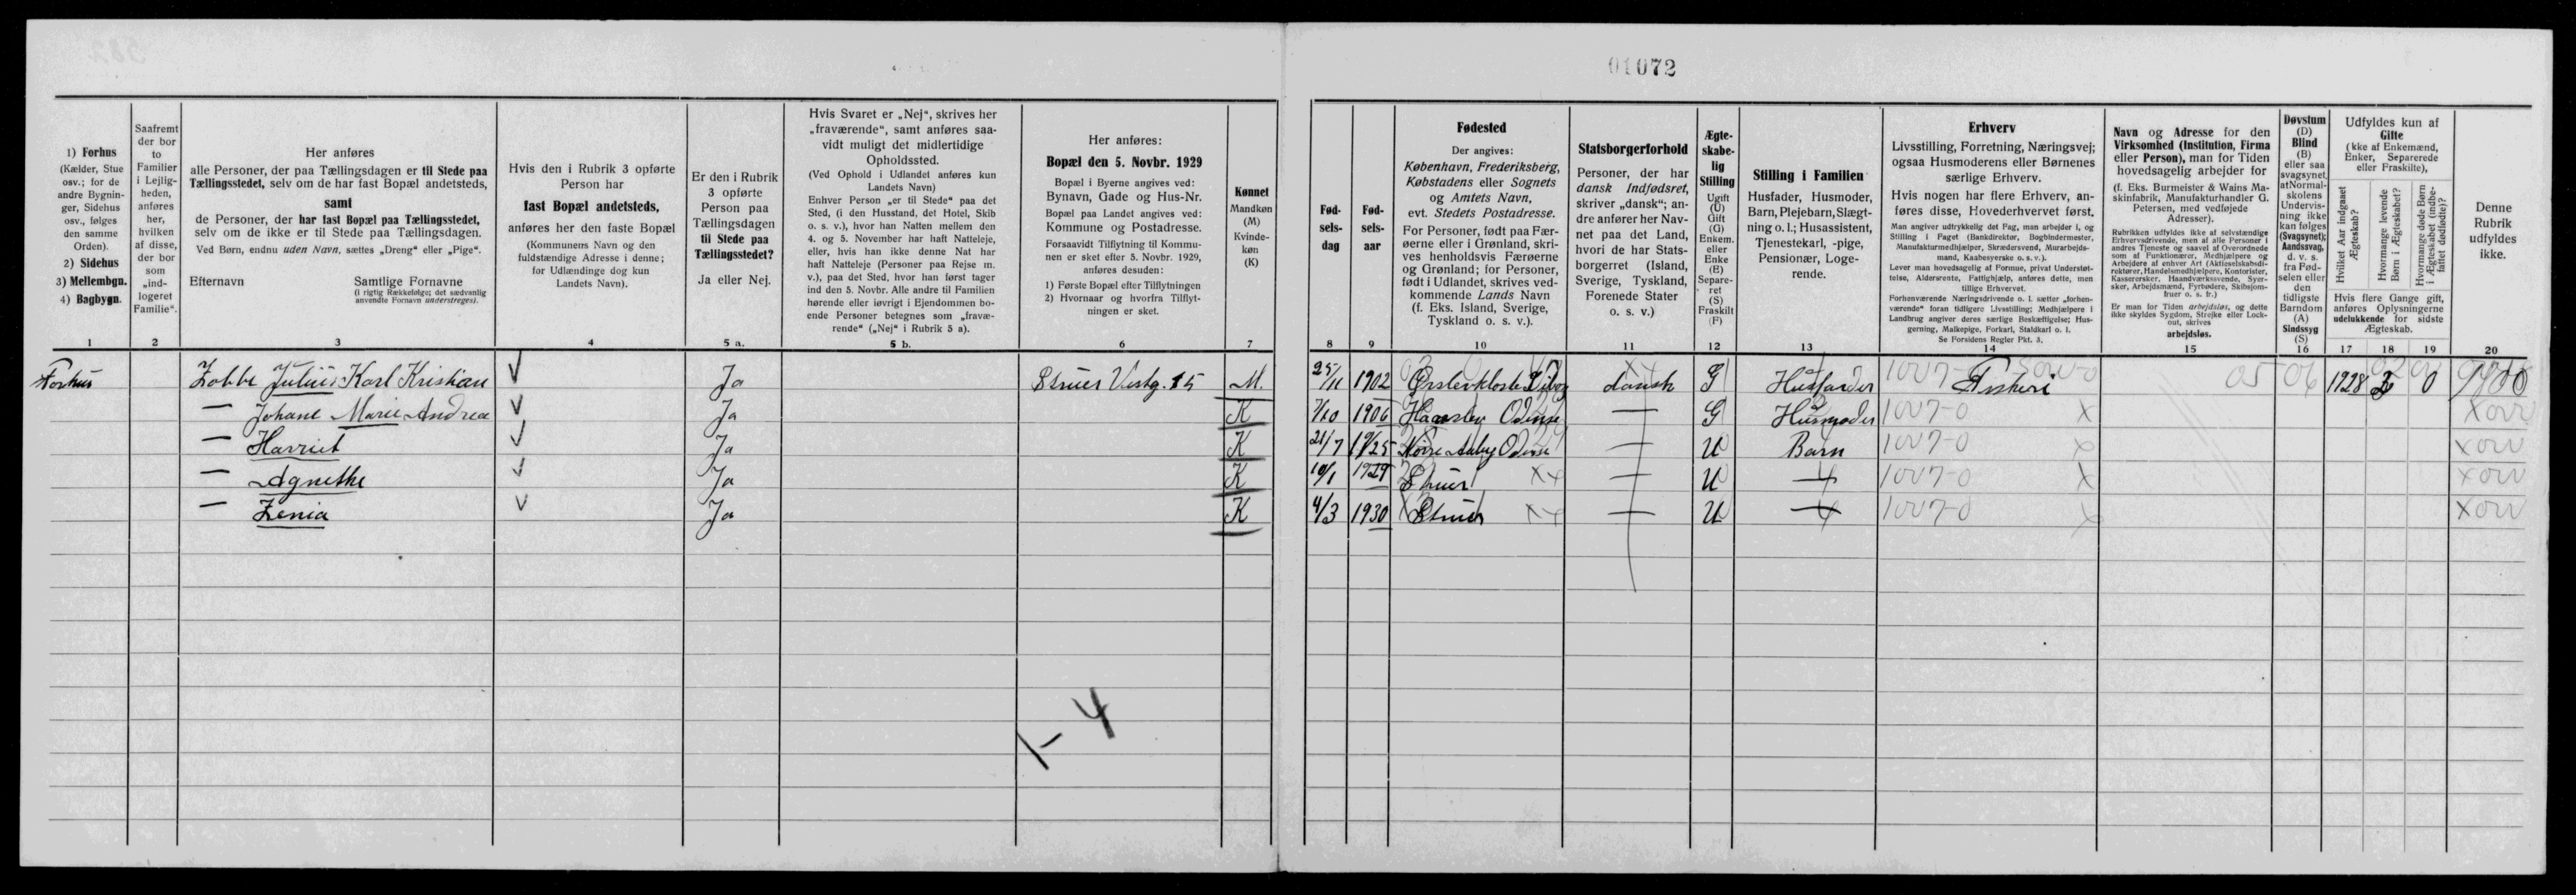 01072
1) Forhus
(Kælder, Stue
osv.; for de
andre Bygnin-
ger, Sidehus
osv., følges
den samme
Orden).
2) Sidehus
3) Mellembgn.
4) Bagbygn.
1
Saafremt
der bor
to
Familier
i Lejlig-
heden,
anføres
her,
hvilken
af disse,
der bor
som
„ind-
logeret
Familie“.
2
Her anføres
alle Personer, der paa Tællingsdagen er til Stede paa
Tællingsstedet, selv om de har fast Bopæl andetsteds,
samt
de Personer, der har fast Bopæl paa Tællingsstedet,
selv om de ikke er til Stede paa Tællingsdagen.
Ved Børn, endnu uden Navn, sættes „Dreng“ eller „Pige“.
Efternavn Samtlige Fornavne
(i rigtig Rækkefølge; det sædvanlig
anvendte Fornavn understreges).
3
Hvis den i Rubrik 3 opførte
Person har
fast Bopæl andetsteds,
anføres her den faste Bopæl
(Kommunens Navn og den
fuldstændige Adresse i denne;
for Udlændinge dog kun
Landets Navn).
4
Er den i Rubrik
3 opførte
Person paa
Tællingsdagen
til Stede paa
Tællingsstedet?
Ja eller Nej.
5 a.
Hvis Svaret er „Nej“, skrives her
„fraværende“, samt anføres saa-
vidt muligt det midlertidige
Opholdssted.
(Ved Ophold i Udlandet anføres kun
Landets Navn)
Enhver Person „er til Stede“ paa det
Sted, (i den Husstand, det Hotel, Skib
o. s. v.), hvor han Natten mellem den
4. og 5. November har haft Natteleje,
eller, hvis han ikke denne Nat har
haft Natteleje (Personer paa Rejse m.
v.), paa det Sted, hvor han først tager
ind den 5. Novbr. Alle andre til Familien
hørende eller iøvrigt i Ejendommen bo-
ende Personer betegnes som „fravæ-
rende“ („Nej“ i Rubrik 5 a).
5 b.
Her anføres:
Bopæl den 5. Novbr. 1929
Bopæl i Byerne angives ved:
Bynavn, Gade og Hus-Nr.
Bopæl paa Landet angives ved:
Kommune og Postadresse.
Forsaavidt Tilflytning til Kommu-
nen er sket efter 5. Novbr. 1929,
anføres desuden:
1) Første Bopæl efter Tilflytningen
2) Hvornaar og hvorfra Tilflyt-
ningen er sket.
6
Kønnet
Mandkøn
(M)
Kvinde-
køn
(K)
7
Fød-
sels-
dag
8
Fød-
sels-
aar
9
Fødested
Der angives:
København, Frederiksberg,
Købstadens eller Sognets
og Amtets Navn,
evt. Stedets Postadresse.
For Personer, født paa Fær-
øerne eller i Grønland, skri-
ves henholdsvis Færøerne
og Grønland; for Personer,
født i Udlandet, skrives ved-
kommende Lands Navn
(f. Eks. Island, Sverige,
Tyskland o. s. v.).
10
Statsborgerforhold
Personer, der har
dansk Indfødsret,
skriver „dansk“; an-
dre anfører her Nav-
net paa det Land,
hvori de har Stats-
borgerret (Island,
Sverige, Tyskland,
Forenede Stater
o. s. v.)
11
Ægte-
skabe-
lig
Stilling
Ugift
(U)
Gift
(G)
Enkem.
eller
Enke
(E)
Separe-
ret
(S)
Fraskilt
(F)
12
Stilling i Familien
Husfader, Husmoder,
Barn, Plejebarn, Slægt-
ning o. l.; Husassistent,
Tjenestekarl, -pige,
Pensionær, Loge-
rende.
13
Erhverv
Livsstilling, Forretning, Næringsvej;
ogsaa Husmoderens eller Børnenes
særlige Erhverv.
Hvis nogen har flere Erhverv, an-
føres disse, Hovederhvervet først.
Man angiver udtrykkelig det Fag, man arbejder i, og
Stilling i Faget (Bankdirektør, Bogbindermester,
Manufakturmedhjælper, Skrædersvend, Murarbejds-
mand, Kaabesyerske o. s. v.).
Lever man hovedsagelig af Formue, privat Understøt-
telse, Aldersrente, Fattighjælp, anføres dette, men
tillige Erhvervet.
Forhenværende Næringsdrivende o. l. sætter „forhen-
værende“ foran tidligere Livsstilling; Medhjælpere i
Landbrug angiver deres særlige Beskæftigelse; Hus-
gerning, Malkepige, Forkarl, Staldkarl o. l.
Se Forsidens Regler Pkt. 3.
14
Navn og Adresse for den
Virksomhed (Institution, Firma
eller Person), man for Tiden
hovedsagelig arbejder for
(f. Eks. Burmeister & Wains Ma-
skinfabrik, Manufakturhandler G.
Petersen, med vedføjede
Adresser).
Rubrikken udfyldes ikke af selvstændige
Erhvervsdrivende, men af alle Personer i
andres Tjeneste og saavel af Overordnede
som af Funktionærer, Medhjælpere og
Arbejdere af enhver Art (Aktieselskabsdi-
rektører, Handelsmedhjælpere, Kontorister,
Kasserersker, Haandværkssvende, Syer-
sker, Arbejdsmænd, Fyrbødere, Skibsjom-
fruer o. s. fr.)
Er man for Tiden arbejdsløs, og dette
ikke skyldes Sygdom, Strejke eller Lock-
out, skrives
arbejdsløs.
15
Døvstum
(D)
Blind
(B)
eller saa
svagsynet,
at Normal-
skolens
Undervis-
ning ikke
kan følges
(Svagsynet);
Aandssvag,
d. v. s.
fra Fød-
selen eller
den
tidligste
Barndom
(A)
Sindssyg
(S)
16
Udfyldes kun af
Gifte
(ikke af Enkemænd,
Enker, Separerede
eller Fraskilte),
Hvilket Aar indgaaet
Ægteskab?
Hvormange levende
Børn i Ægteskabet?
Hvormange døde Børn
i Ægteskabet (indbe-
fattet dødfødte)?
Hvis flere Gange gift,
anføres Oplysningerne
udelukkende for sidste
Ægteskab.
17 18 19
Denne
Rubrik
udfyldes
ikke.
20
Forhus Zobbe Julius Karl Kristian V Ja Struer Vestg. 15 M. 25/11 1902 Ørslevkloster Viborg dansk G Husfader 1007-0 Fiskeri 05 06 1928 2 0
— Johane Marie Andrea V Ja K 7/10 1906 Haarslev Odense — G Husmoder 1007-0 x
— Harriet V Ja K 21/7 1925 Nørre Aaby Odense — U Barn 1007-0 x
— Agnethe V Ja K 10/1 1929 Struer — U — 1007-0 x
— Zenia V Ja K 4/3 1930 Struer — U — 1007-0 x
1-4